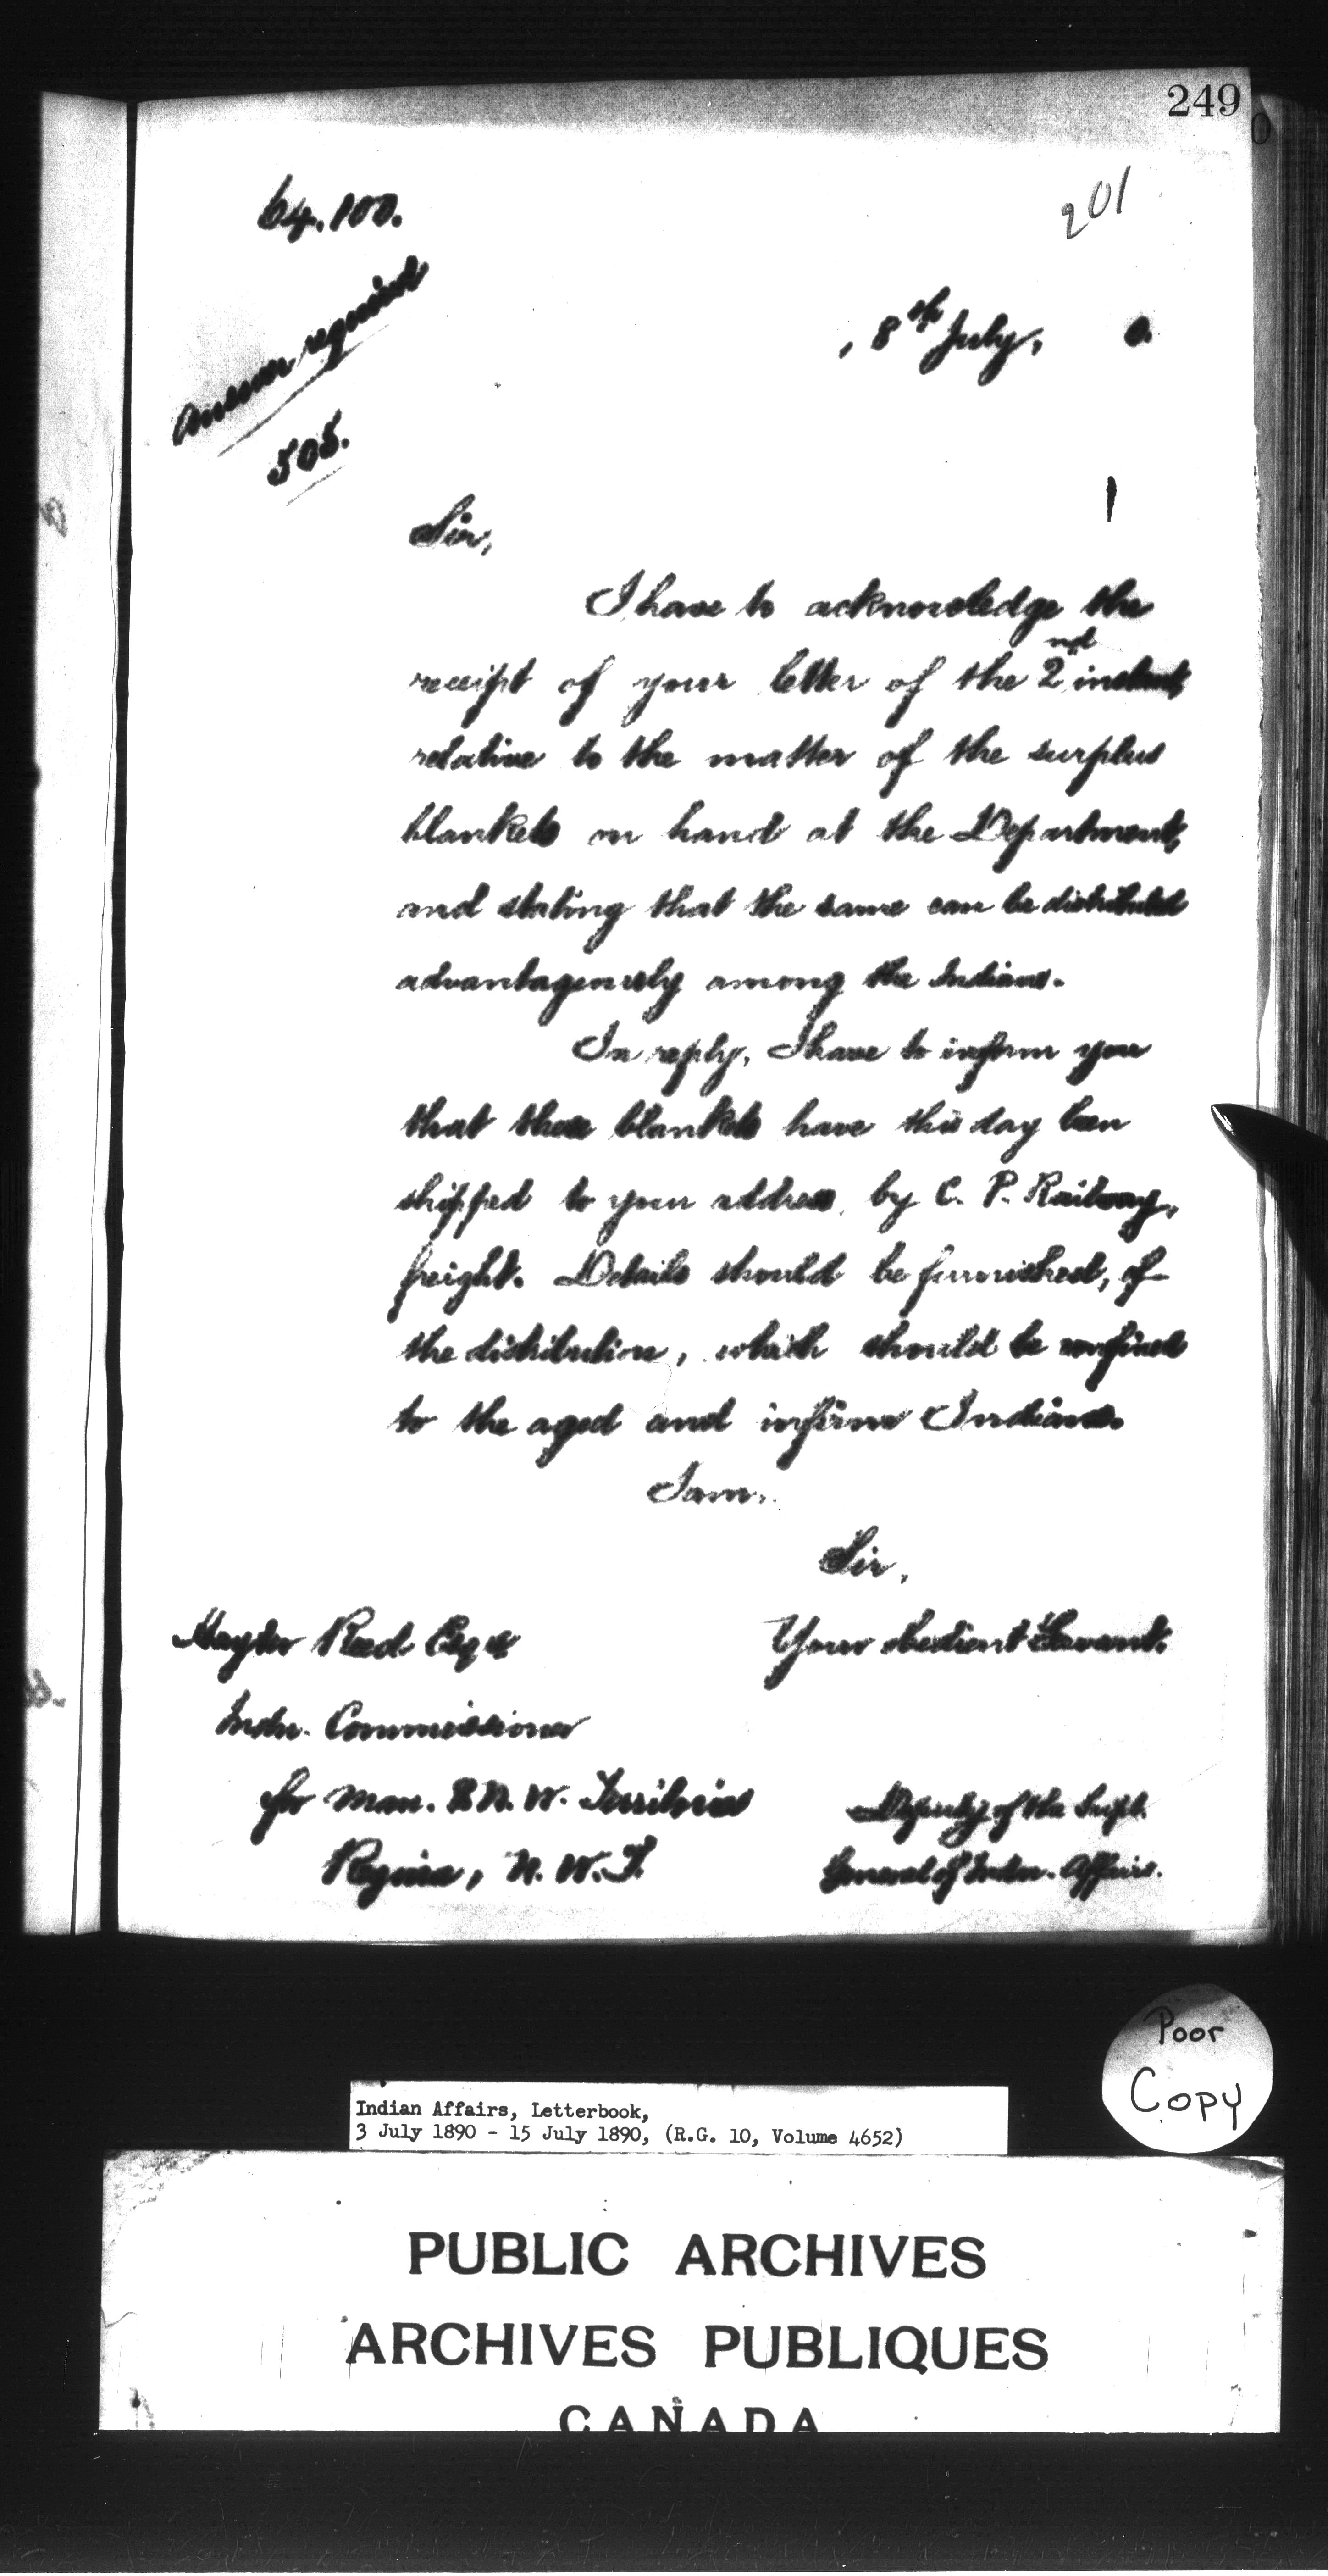 249
201
64.100.
Answer required
505.
, 8th July, 0.
Sir,
I have to acknowledge the
receipt of your letter of the 2nd instant,
relative to the matter of the surplus
blankets on hand at the Department,
and stating that the same can be distributed
advantageously among the Indians.
In reply, I have to inform you
that these blankets have this day been
shipped to your address, by C. P. Railway,
freight. Details should be furnished, of
the distribution, which should be confined
to the aged and infirm Indians.
I am,
Sir,
Your obedient Servant.
Hayter Reed Esqre
Indn. Commissioner
for Man. & N. W. Territories
Regina, N. W. T.
Deputy of the Supt.
General of Indn. Affairs.
Poor
Copy
Indian Affairs, Letterbook,
3 July 1890 - 15 July 1890, (R.G. 10, Volume 4652)
PUBLIC ARCHIVES
ARCHIVES PUBLIQUES
CANADA